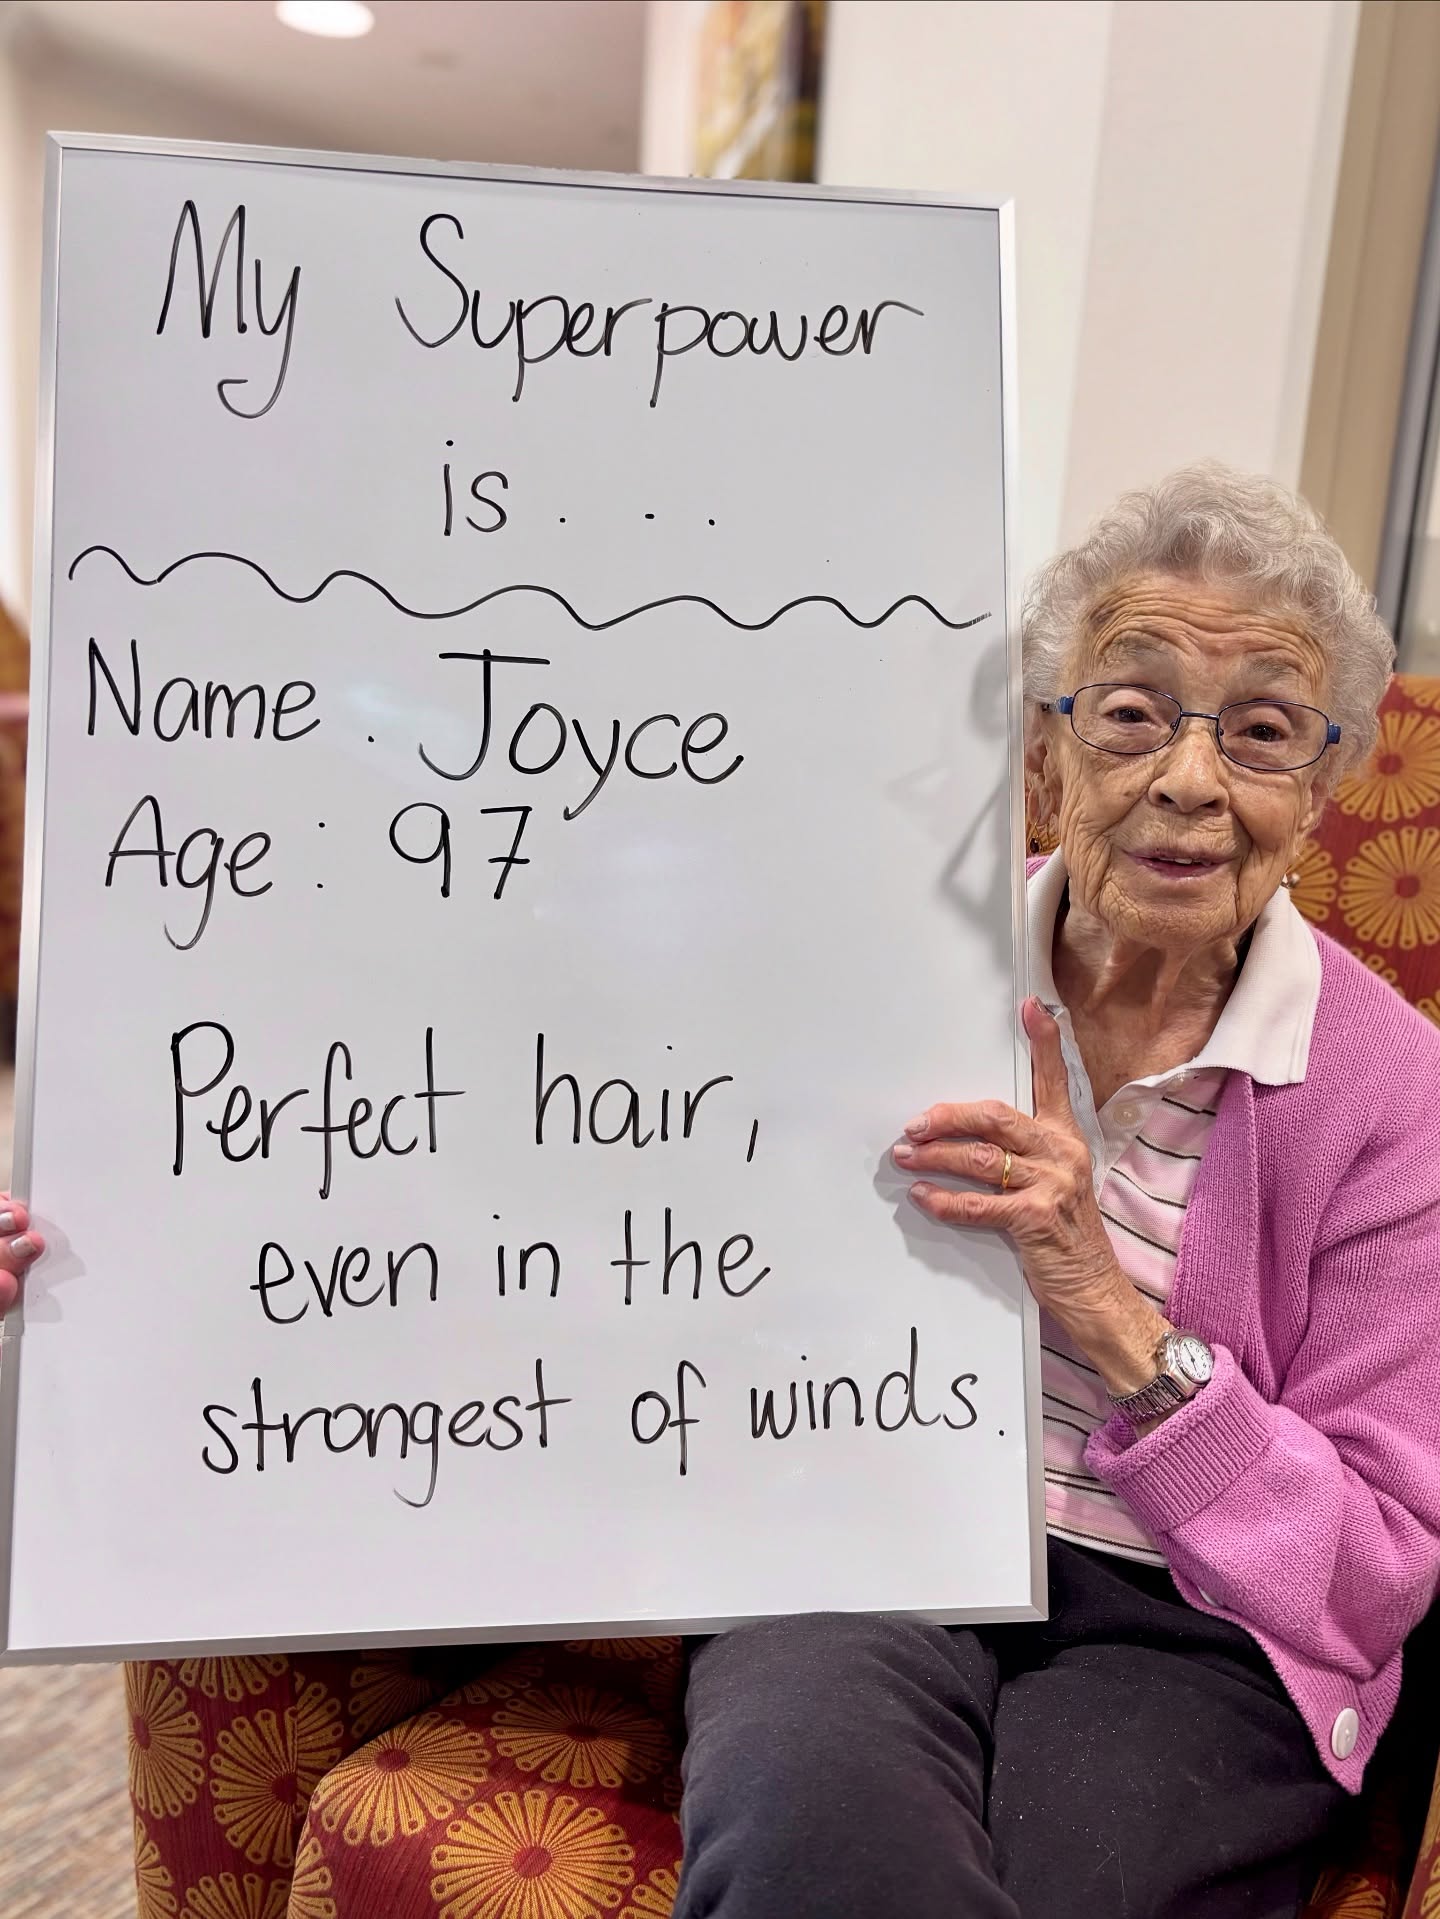 My Superpower
is...
Name. Joyce
Age: 97
Perfect hair,
even in the
strongest of winds.